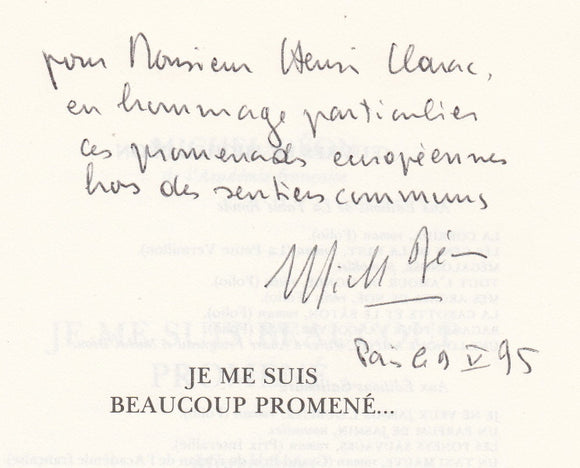 pour Monsieur Henri Clarac,
en hommage particulier
ces promenades européennes
hors des sentiers communs
Michel Déon
Paris le 9 V 95
JE ME SUIS
BEAUCOUP PROMENÉ...